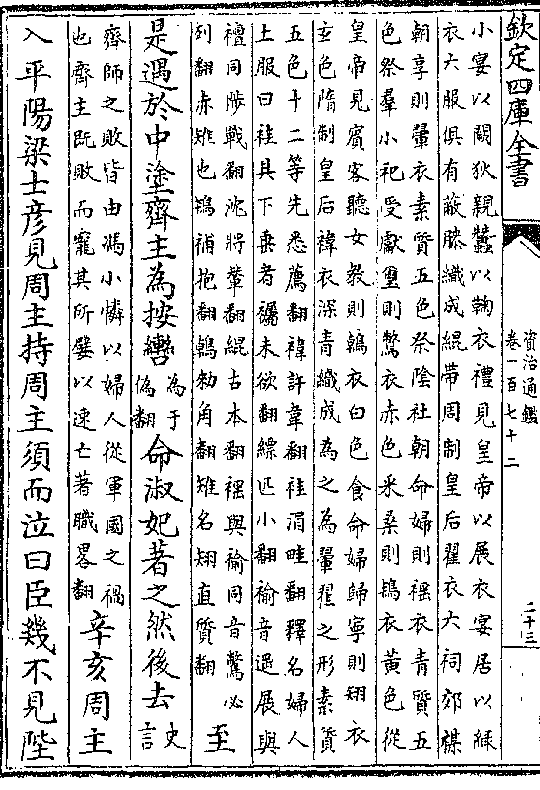 欽定四庫全書
資治通鑑
卷一百七十二
二十三
小宴以闗狄親蠶以鞠衣禮見皇帝以展衣宴居以緣
衣六服俱有蔽膝織成緄帶周制皇后翟衣大祠郊禖
朝享則翬衣素質五色祭隂社朝命婦則䄖衣青質五
色祭羣小祀受獻璽則鷩衣赤色采桑則鳪衣黃色從
皇帝見賓客聽女教則鶾衣白色食命婦歸寧則翐衣
玄色隋制皇后褘衣深青織成為之為翬翟之形素質
五色十二等先悉薦翻褘許韋翻袿涓畦翻釋名婦人
上服曰袿其下垂者襡未欲翻縹匹小翻褕音遥展與
襢同陟戰翻沈將輦翻緄古本翻䄖與褕同音鷩必
列翻赤雉也鳪補抱翻鶾勑角翻雉名翐直質翻
至
是遇於中塗齊主為按轡
為于
偽翻
命淑妃著之然後去
史
言
齊師之敗皆由馮小憐以婦人從軍國之禍
也齊主既敗而寵其所嬖以速亡著職畧翻
辛亥周主
入平陽梁士彦見周主持周主須而泣曰臣幾不見陛